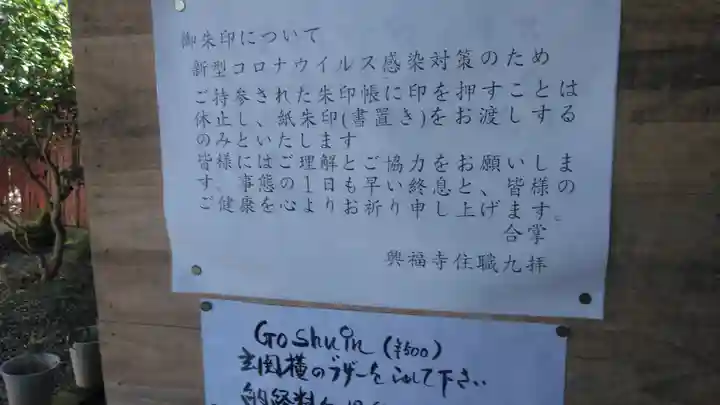 御朱印について
新型コロナウイルス感染対策のため
ご持参された朱印帳に印を押すことは
休止し、紙朱印(書置き)をお渡しする
のみといたします
皆様にはご理解とご協力をお願いしま
す。事態の１日も早い終息と、皆様の
ご健康を心よりお祈り申し上げます。
合掌
興福寺住職九拝
Goshuin (¥500)
玄関横のブザーを して下さい
納経料